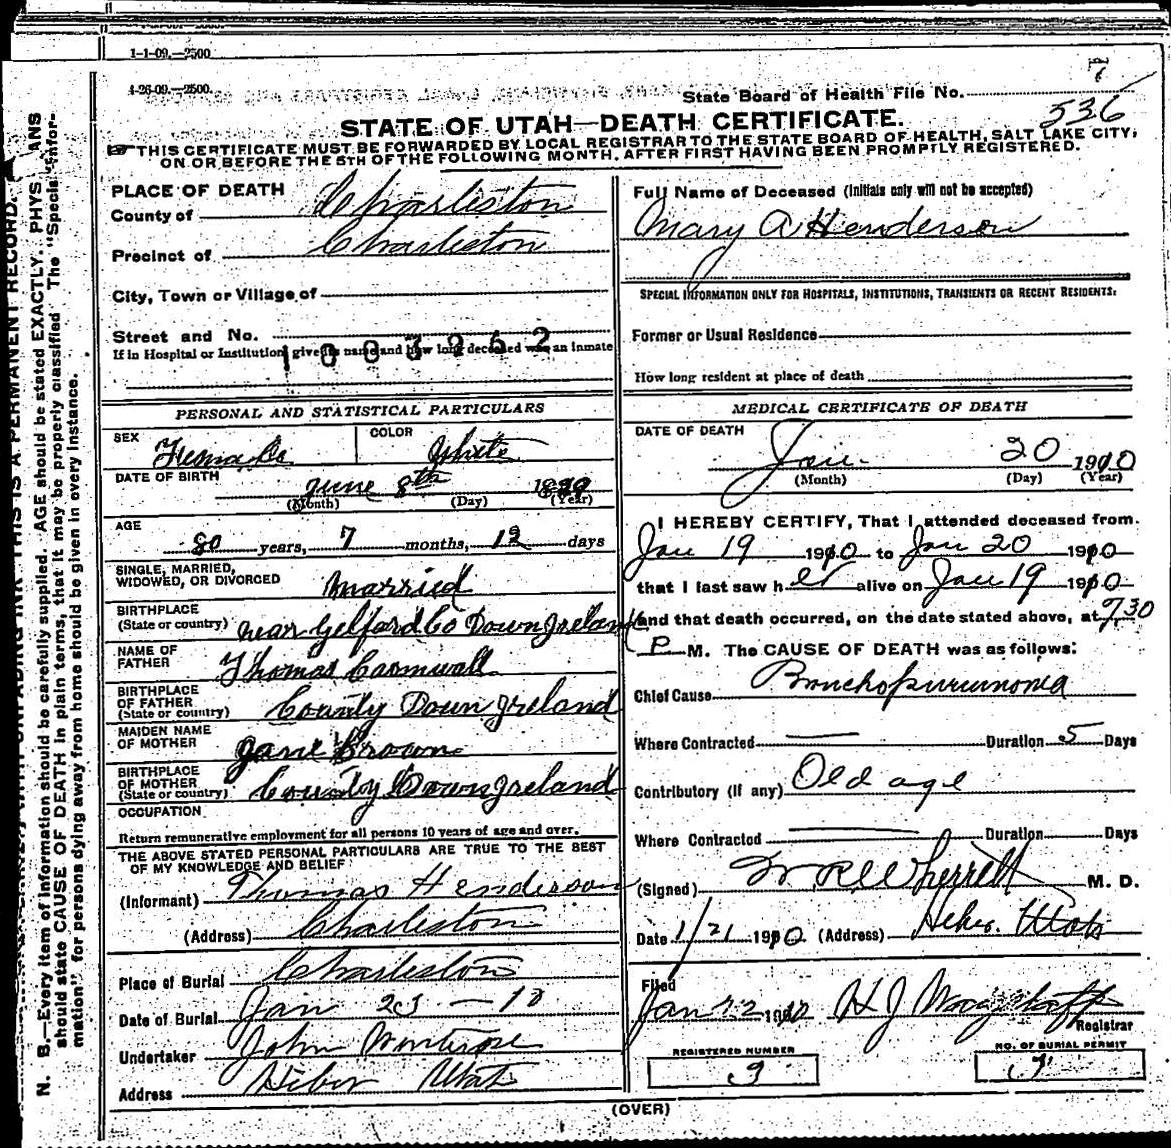 1-1-09.—2500
4-26-09.—2500.
7
State Board of Health File No.
536
STATE OF UTAH—DEATH CERTIFICATE.
THIS CERTIFICATE MUST BE FORWARDED BY LOCAL REGISTRAR TO THE STATE BOARD OF HEALTH, SALT LAKE CITY,
ON OR BEFORE THE 5TH OF THE FOLLOWING MONTH, AFTER FIRST HAVING BEEN PROMPTLY REGISTERED.
PLACE OF DEATH
County of Charleston
Precinct of Charleston
City, Town or Village of
Street and No.
1003262
If in Hospital or Institution give its name and how long deceased was an inmate
Full Name of Deceased (Initials only will not be accepted)
Mary A Henderson
SPECIAL INFORMATION ONLY FOR HOSPITALS, INSTITUTIONS, TRANSIENTS OR RECENT RESIDENTS:
Former or Usual Residence
How long resident at place of death
PERSONAL AND STATISTICAL PARTICULARS
SEX Female COLOR White
DATE OF BIRTH June 8th 1829
(Month) (Day) (Year)
AGE
80 years, 7 months, 12 days
SINGLE, MARRIED,
WIDOWED, OR DIVORCED Married
BIRTHPLACE
(State or country) near Gelford Co Down Ireland
NAME OF
FATHER Thomas Cornwall
BIRTHPLACE
OF FATHER
(State or country) County Down Ireland
MAIDEN NAME
OF MOTHER Jane Brown
BIRTHPLACE
OF MOTHER
(State or country) County Down Ireland
OCCUPATION
Return remunerative employment for all persons 10 years of age and over.
THE ABOVE STATED PERSONAL PARTICULARS ARE TRUE TO THE BEST
OF MY KNOWLEDGE AND BELIEF:
(Informant) Thomas Henderson
(Address) Charleston
Place of Burial Charleston
Date of Burial Jan 23 - 10
Undertaker John
Address Heber Utah
MEDICAL CERTIFICATE OF DEATH
DATE OF DEATH
Jan. 20 1910
(Month) (Day) (Year)
I HEREBY CERTIFY, That I attended deceased from
Jan 19 1910 to Jan 20 1910
that I last saw her alive on Jan 19 1910
and that death occurred, on the date stated above, at 7.30
P M. The CAUSE OF DEATH was as follows:
Chief Cause Bronchopneumonia
Where Contracted Duration 5 Days
Contributory (if any) Old age
Where Contracted Duration Days
(Signed) W R Wherrett M. D.
Date 1/21 1910 (Address) Heber. Utah
Filed
Jan 22 1910 H J Wagstaff
Registrar
REGISTERED NUMBER
3
NO. OF BURIAL PERMIT
3
(OVER)
THIS IS A PERMANENT RECORD.
N. B.—Every item of information should be carefully supplied. AGE should be stated EXACTLY. PHYSICIANS
should state CAUSE OF DEATH in plain terms, that it may be properly classified. The "Special Infor-
mation" for persons dying away from home should be given in every instance.